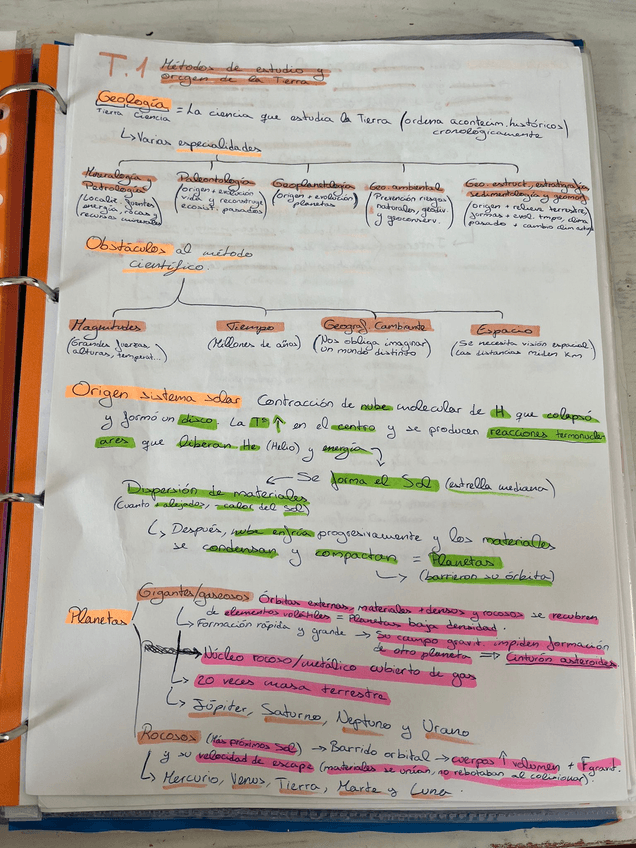 T.1 Métodos de estudio y
origen de la Tierra
Geología = La ciencia que estudia la Tierra (ordena acontecim. históricos)
Tierra ciencia cronológicamente
↳ Varias especialidades
Mineralogía y Paleontología Geoplanetología Geo ambiental Geo. estruct, estratigrafía
Petrología (origen + evolución (origen + evolución (Prevención riesgos sedimentología y geomor.
(Localiz. fuentes vida y reconstruye planetas) naturales, gestión (origen + relieve terrestre,
energía, rocas y ecosist. pasados) y geoconserv.) formas + evol. tmpo, clima
recursos minerales) pasados + cambio climático)
Obstáculos al método
científico
Magnitudes Tiempo Geograf. Cambiante Espacio
(Grandes fuerzas, (Millones de años) (Nos obliga imaginar (Se necesita visión espacial)
alturas, temperat...) un mundo distinto) Las distancias miden Km
Origen sistema solar Contracción de nube molecular de H que colapsó
y formó un disco. La Tª ↑ en el centro y se producen reacciones termonucle
ares que liberan He (Helio) y energía
Se forma el Sol (estrella mediana)
Dispersión de materiales
(Cuanto + alejados, - calor del Sol)
↳ Después, nube enfría progresivamente y los materiales
se condensan y compactan = Planetas
↳ (barrieron su órbita)
Planetas
Gigantes/gaseosos Órbitas externas, materiales + densos y rocosos se recubren
de elementos volátiles = Planetas baja densidad.
↳ Formación rápida y grande → Su campo gravit. impiden formación
de otro planeta ⇒ Cinturón asteroides
→ Núcleo rocoso/metálico cubierto de gas
↳ 20 veces masa terrestre
↳ Júpiter, Saturno, Neptuno y Urano
Rocosos (Más próximos Sol) → Barrido orbital → cuerpos ↑ volumen + F grav.
y su velocidad de escape (materiales se unían, no rebotaban al colisionar).
↳ Mercurio, Venus, Tierra, Marte y Luna.